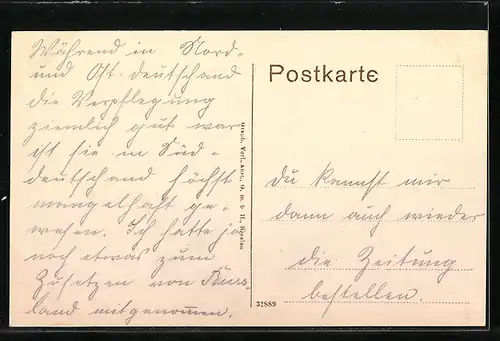 Während in Nord-
und Ost-deutschland
die Verpflegung
ziemlich gut war
ist sie in Süd-
deutschland höchst
mangelhaft ge-
wesen. Ich hatte ja
noch etwas zum
Zusetzen von Russ-
land mitgenommen.
Graph. Verl.-Anst., G. m. b. H., Breslau
Postkarte
du kannst mir
dann auch wieder
die Zeitung
bestellen.
32889